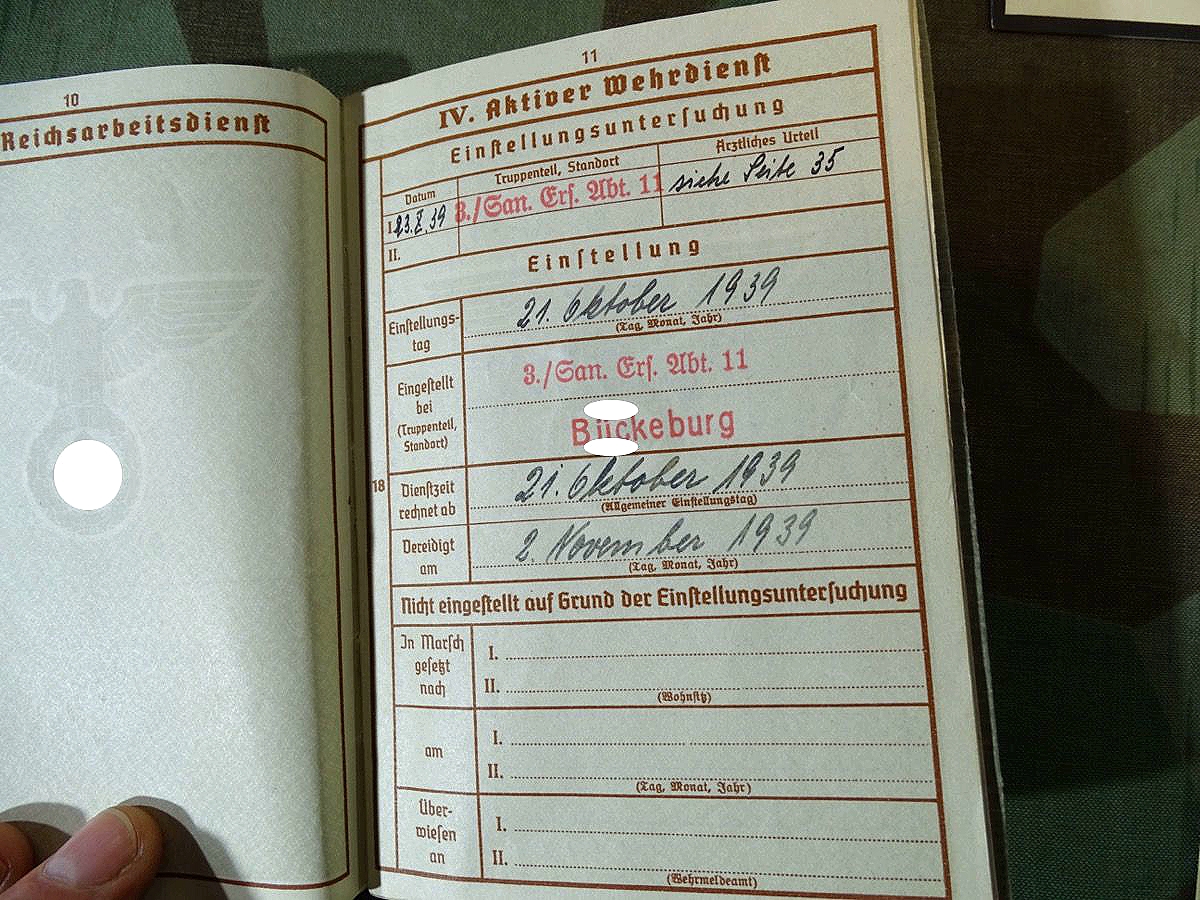 10
Reichsarbeitsdienst
11
IV. Aktiver Wehrdienst
Einstellungsuntersuchung
Datum
Truppenteil, Standort
Ärztliches Urteil
I. 23.X.39 3./San. Ers. Abt. 11 siehe Seite 35
II.
Einstellung
Einstellungs-
tag
21. Oktober 1939
(Tag, Monat, Jahr)
Eingestellt
bei
(Truppenteil,
Standort)
3./San. Ers. Abt. 11
Bückeburg
18
Dienstzeit
rechnet ab
21. Oktober 1939
(Allgemeiner Einstellungstag)
Vereidigt
am
2. November 1939
(Tag, Monat, Jahr)
Nicht eingestellt auf Grund der Einstellungsuntersuchung
In Marsch
gesetzt
nach
I.
II.
(Wohnsitz)
am
I.
II.
(Tag, Monat, Jahr)
Über-
wiesen
an
I.
II.
(Wehrmeldeamt)